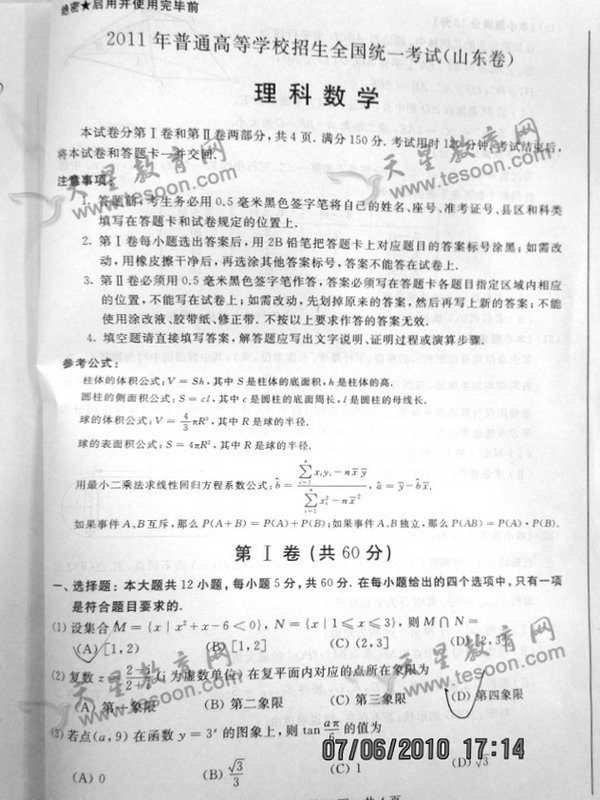 绝密★启用并使用完毕前
2011年普通高等学校招生全国统一考试(山东卷)
理科数学
本试卷分第Ⅰ卷和第Ⅱ卷两部分,共4页.满分150分.考试用时120分钟.考试结束后,
将本试卷和答题卡一并交回.
注意事项:
1. 答题前,考生务必用0.5毫米黑色签字笔将自己的姓名、座号、准考证号、县区和科类
填写在答题卡和试卷规定的位置上.
2. 第Ⅰ卷每小题选出答案后,用2B铅笔把答题卡上对应题目的答案标号涂黑;如需改
动,用橡皮擦干净后,再选涂其他答案标号,答案不能答在试卷上.
3. 第Ⅱ卷必须用0.5毫米黑色签字笔作答,答案必须写在答题卡各题目指定区域内相应
的位置,不能写在试卷上;如需改动,先划掉原来的答案,然后再写上新的答案;不能
使用涂改液、胶带纸、修正带.不按以上要求作答的答案无效.
4. 填空题请直接填写答案,解答题应写出文字说明、证明过程或演算步骤.
参考公式:
柱体的体积公式:V=Sh,其中S是柱体的底面积,h是柱体的高.
圆柱的侧面积公式:S=cl,其中c是圆柱的底面周长,l是圆柱的母线长.
球的体积公式:V=4/3πR³,其中R是球的半径.
球的表面积公式:S=4πR²,其中R是球的半径.
用最小二乘法求线性回归方程系数公式:b̂=(∑_{i=1}^{n} x_i y_i − n x̄ ȳ)/(∑_{i=1}^{n} x_i² − n x̄²), â=ȳ−b̂x̄.
如果事件A、B互斥,那么P(A+B)=P(A)+P(B);如果事件A、B独立,那么P(AB)=P(A)·P(B).
第Ⅰ卷(共60分)
一、选择题:本大题共12小题,每小题5分,共60分.在每小题给出的四个选项中,只有一项
是符合题目要求的.
(1) 设集合M={x|x²+x-6<0},N={x|1≤x≤3},则M∩N=
(A) [1,2) (B) [1,2] (C) (2,3] (D) [2,3]
(2) 复数z=(2-i)/(2+i)(i为虚数单位)在复平面内对应的点所在象限为
(A) 第一象限 (B) 第二象限 (C) 第三象限 (D) 第四象限
(3) 若点(a,9)在函数y=3ˣ的图象上,则tan aπ/6 的值为
(A) 0 (B) √3/3 (C) 1 (D) √3
07/06/2010 17:14
天星教育网
www.tesoon.com
天星教育网
www.tesoon.com
天星教育网
www.tesoon.com
天星教育网
www.tesoon.com